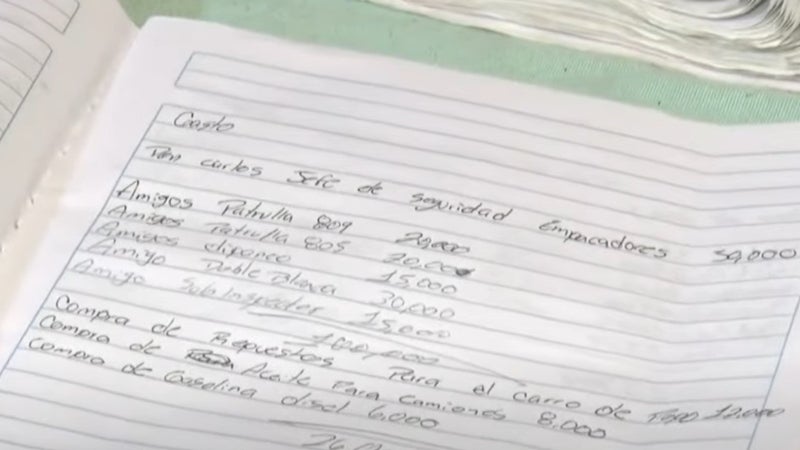 Gasto
Don carlos Jefe de seguridad Empacadores 50,000
Amigos Patrulla 809 20,000
Amigos Patrulla 805 20,000
Amigos dipanco 15,000
Amigo Doble Blanca 30,000
Amigo Sub Inspector 15,000
100,000
Compra de Repuestos Para el carro de 12,000
Compra de Aceite Para Camiones 8,000
Compra de Gasolina disel 6,000